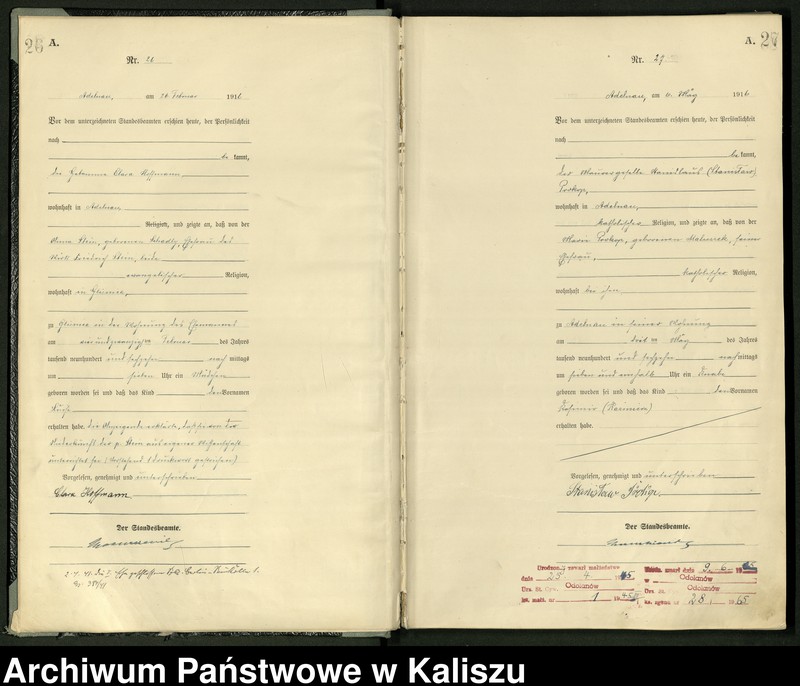 26
A.
Nr. 26
Adelnau, am 26 Februar 1916
Vor dem unterzeichneten Standesbeamten erschien heute, der Persönlichkeit
nach
be kannt,
die Hebamme Clara Hoffmann
wohnhaft in Adelnau
Religion, und zeigte an, daß von der
Anna Stein, geborenen Ehefrau des
Stein, beide
evangelischer Religion,
wohnhaft in Glisnica,
zu Glisnica in der Wohnung des Ehemannes
am vierundzwanzigsten Februar des Jahres
tausend neunhundert und sechzehn nach mittags
um sieben Uhr ein Mädchen
geboren worden sei und daß das Kind den Vornamen
erhalten habe. Die Anzeigende erklärte, daß sie von der
Niederkunft der p. Stein aus eigener Wissenschaft
unterrichtet sei. (Vorstehend 1 Druckwort gestrichen)
Vorgelesen, genehmigt und unterschrieben
Clara Hoffmann
Der Standesbeamte.
A. 27
Nr. 27
Adelnau, am 6. März 1916
Vor dem unterzeichneten Standesbeamten erschien heute, der Persönlichkeit
nach
be kannt,
der Maurergeselle Stanislaus (Stanisław)
Prokop,
wohnhaft in Adelnau,
katholischer Religion, und zeigte an, daß von der
Maria Prokop, geborenen seiner
Ehefrau,
katholischer Religion,
wohnhaft bei ihm
zu Adelnau in seiner Wohnung
am drit ten März des Jahres
tausend neunhundert und sechzehn nachmittags
um sieben und einhalb Uhr ein Knabe
geboren worden sei und daß das Kind den Vornamen
Kasimir (Kazimierz)
erhalten habe.
Vorgelesen, genehmigt und unterschrieben
Stanisław Prokop.
Der Standesbeamte.
Urodzon. zawarł małżeństwo
dnia 23 4 1945
Urz. St. Cyw. Odolanów
ks. małż. nr 1 1945
zmarł dnia 9. 6. 1965
w Odolanów
Urz. St. Odolanów
ks. zgonu nr 28 1965
Archiwum Państwowe w Kaliszu